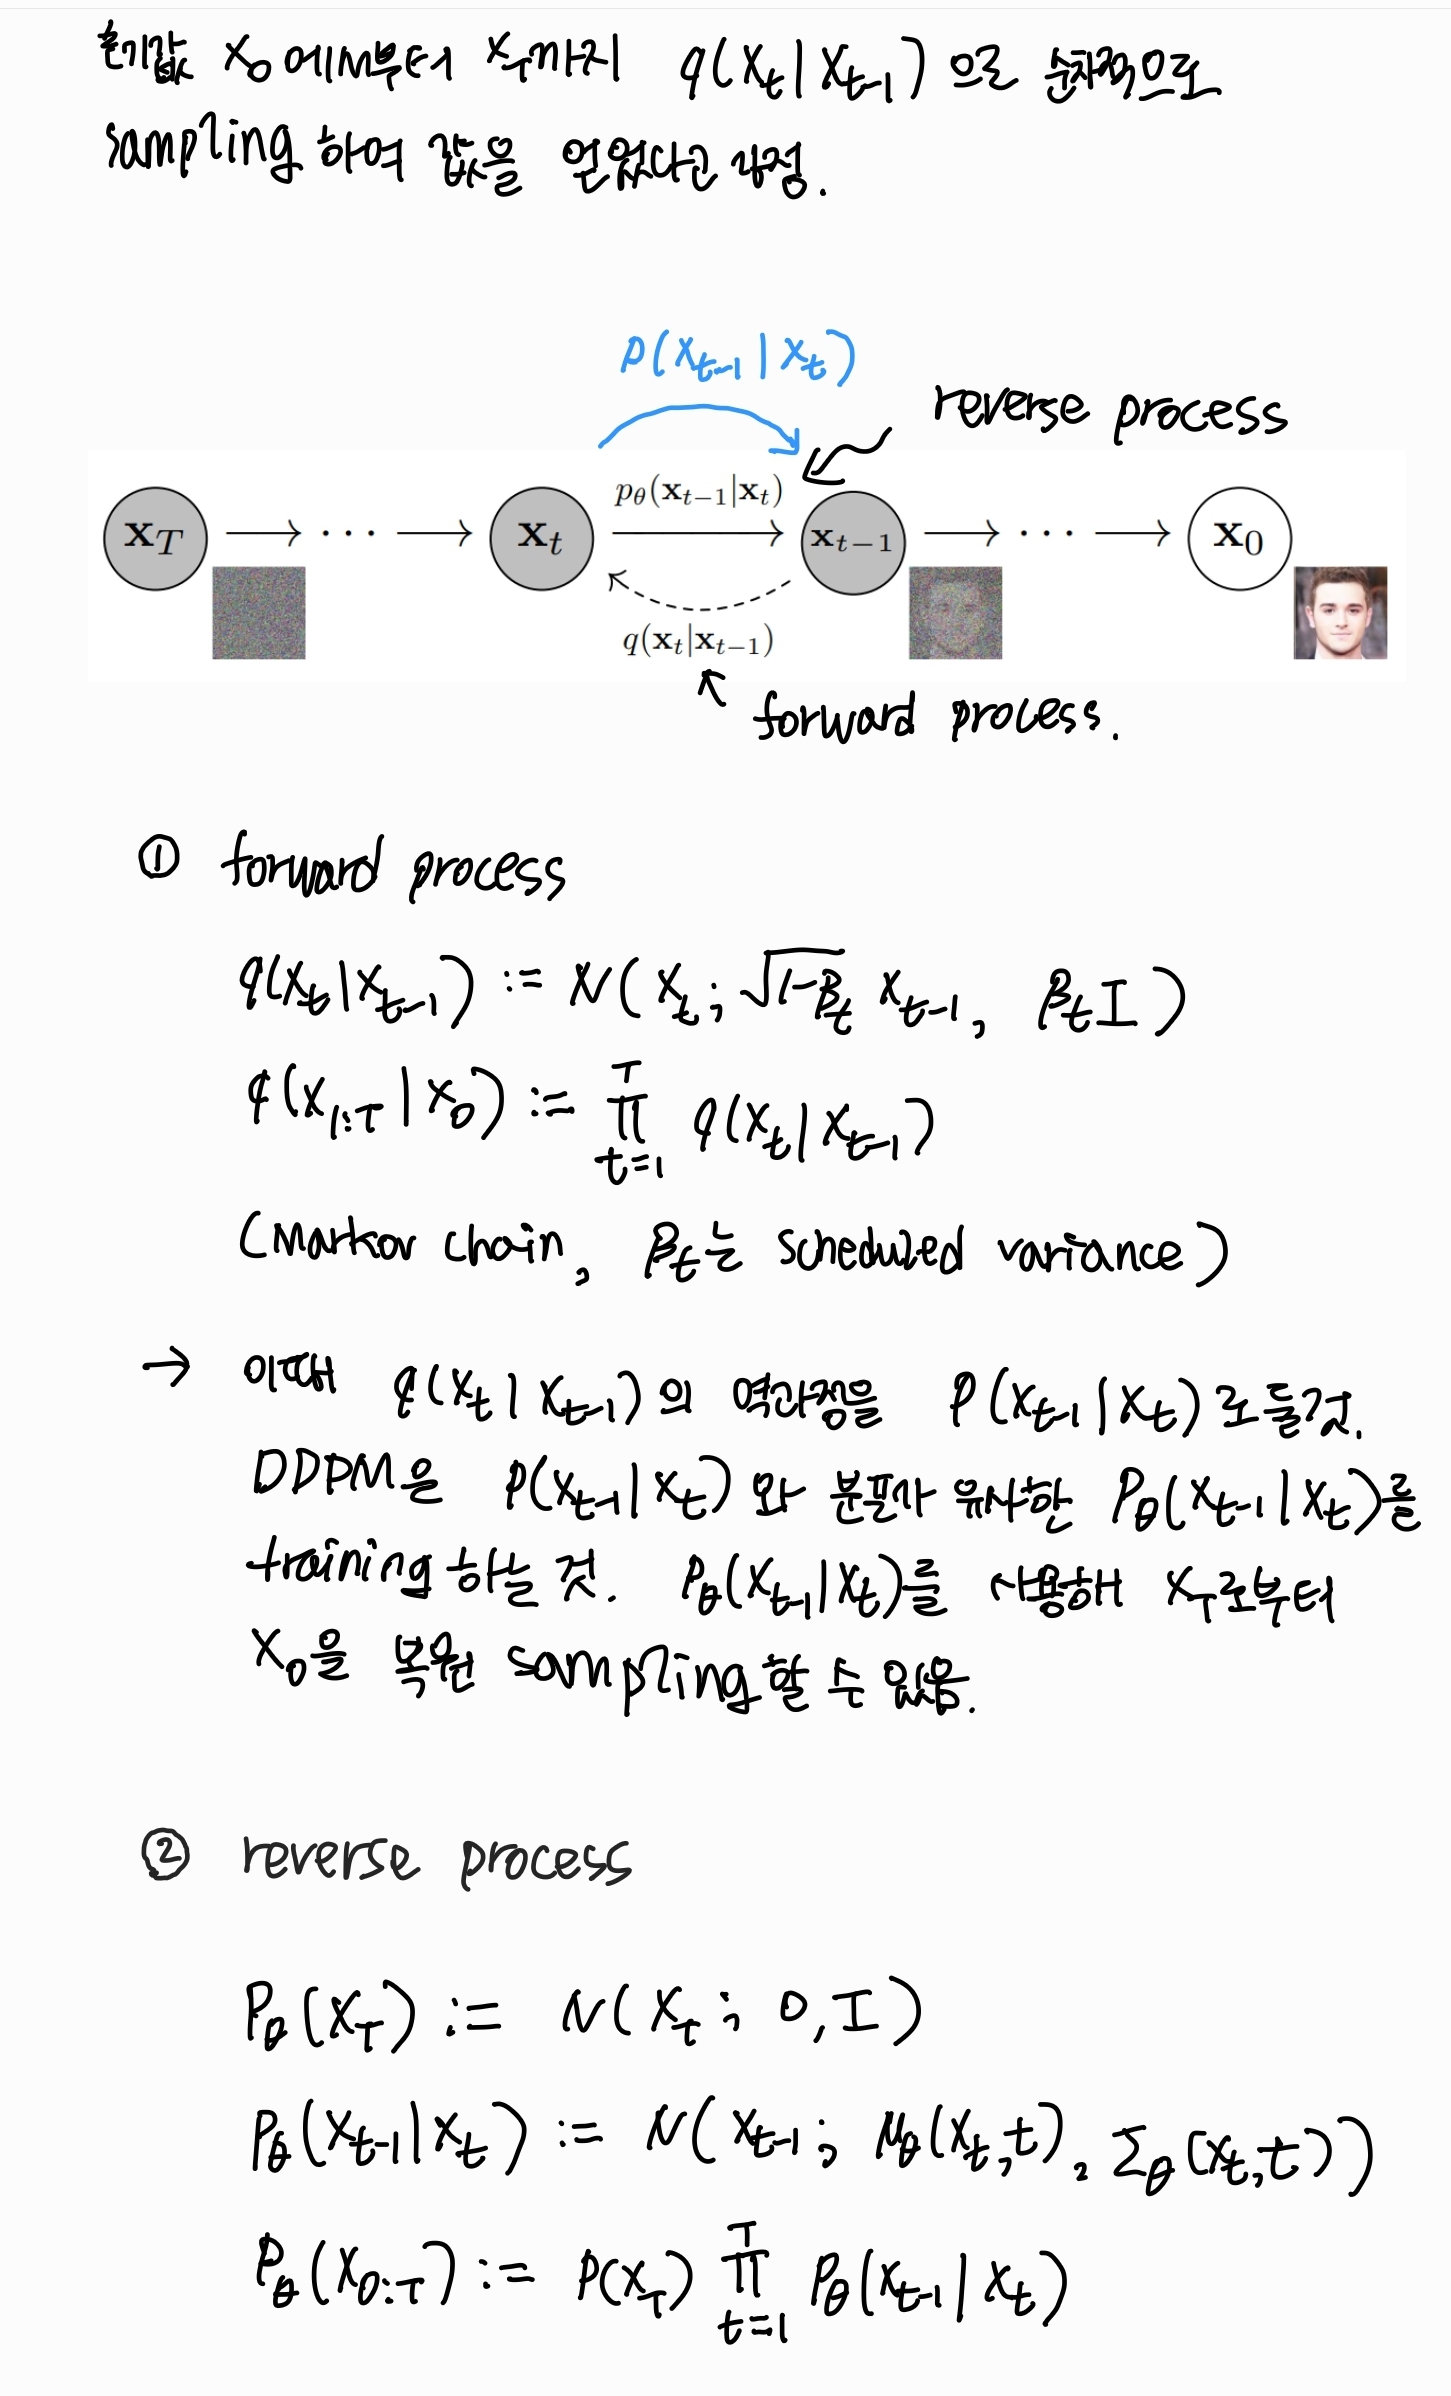 초기값 x₀에서부터 x_T까지 q(x_t|x_{t-1})으로 순차적으로
sampling하여 값을 얻었다고 가정.
p(x_{t-1}|x_t)
reverse process
p_θ(x_{t-1}|x_t)
x_T → ⋯ → x_t → x_{t-1} → ⋯ → x_0
q(x_t|x_{t-1})
forward process.
① forward process
q(x_t|x_{t-1}) := N(x_t; √(1-β_t) x_{t-1}, β_t I)
q(x_{1:T}|x_0) := ∏_{t=1}^{T} q(x_t|x_{t-1})
(Markov chain, β_t는 scheduled variance)
→ 이때 q(x_t|x_{t-1})의 역과정을 p(x_{t-1}|x_t)로 둘것.
DDPM은 p(x_{t-1}|x_t)와 분포가 유사한 p_θ(x_{t-1}|x_t)를
training하는 것. p_θ(x_{t-1}|x_t)를 사용해 x_T로부터
x_0을 복원 sampling할 수 있음.
② reverse process
p_θ(x_T) := N(x_T; 0, I)
p_θ(x_{t-1}|x_t) := N(x_{t-1}; μ_θ(x_t,t), Σ_θ(x_t,t))
p_θ(x_{0:T}) := p(x_T) ∏_{t=1}^{T} p_θ(x_{t-1}|x_t)